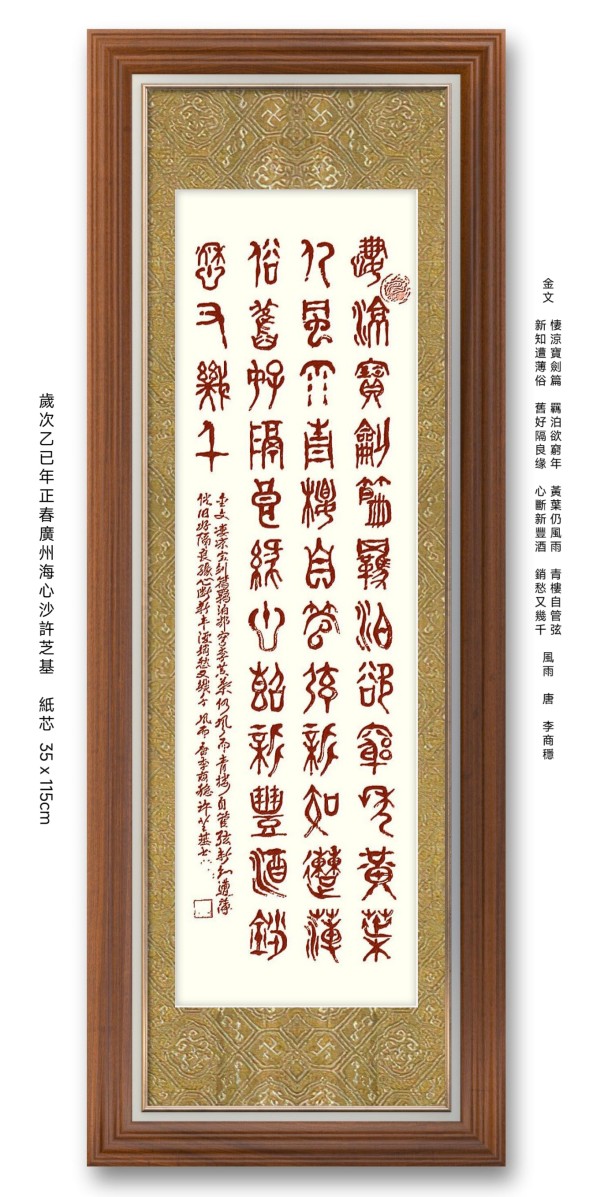 金文
悽涼寶劍篇 羈泊欲窮年 黃葉仍風雨 青樓自管弦
新知遭薄俗 舊好隔良缘 心斷新豐酒 銷愁又幾千
風雨 唐 李商穩
悽涼寶劍篇羈泊欲窮年黃葉
仍風雨青樓自管弦新知遭薄
俗舊好隔良緣心斷新豐酒銷
愁又幾千
金文凄凉宝剑篇羈泊欲穷年黄葉仍風雨青楼自管弦新知遭薄
俗旧好隔良缘心断新丰酒销愁又幾千風雨唐李商穩许芝基书
歲次乙已年正春廣州海心沙許芝基 紙芯 35 x 115cm